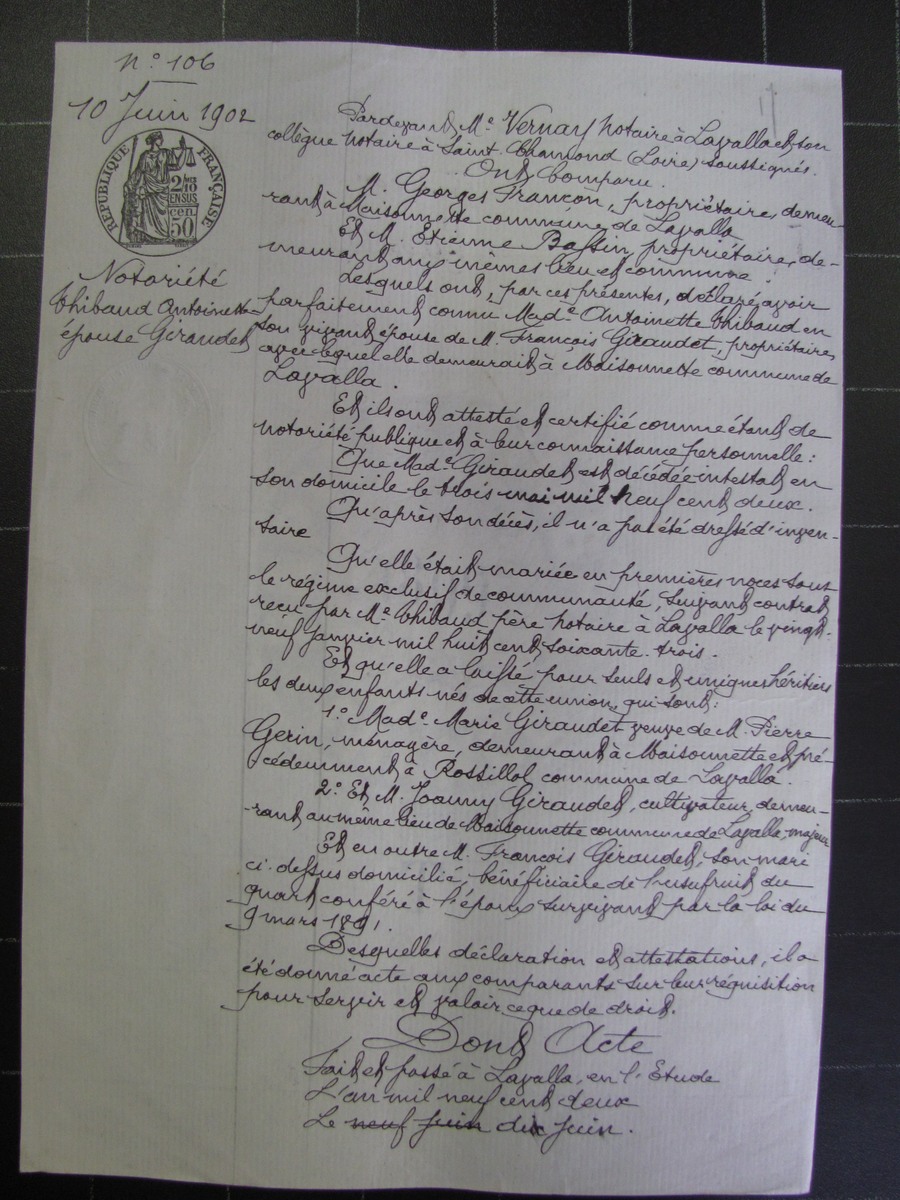 N° 106
10 Juin 1902
REPUBLIQUE FRANÇAISE
2/10 EN SUS
50 cen.
Notoriété
Thibaud Antoinette
épouse Giraudet
Pardevant Me Vernay notaire à Lavalla et son
collègue notaire à Saint Chamond (Loire) soussignés.
Ont Comparu.
M. Georges Francon, propriétaire, demeu-
rant à Maisonnette commune de Lavalla
Et M. Etienne Bassin, propriétaire, de-
meurant aux mêmes lieu et commune
Lesquels ont, par ces présentes, déclaré avoir
parfaitement connu Made Antoinette Thibaud en
son vivant épouse de M. François Giraudet, propriétaire,
avec lequel elle demeurait à Maisonnette commune de
Lavalla.
Et ils ont attesté et certifié comme étant de
notoriété publique et à leur connaissance personnelle :
Que Made Giraudet est décédée intestat en
son domicile le trois mai mil neuf cent deux.
Qu'après son décès, il n'a pas été dressé d'inven-
taire
Qu'elle était mariée en premières noces sous
le régime exclusif de communauté, suivant contrat
reçu par Me Thibaud père notaire à Lavalla le vingt-
neuf janvier mil huit cent soixante trois.
Et qu'elle a laissé pour seuls et uniques héritiers
les deux enfants nés de cette union, qui sont :
1° Made Marie Giraudet veuve de M. Pierre
Gerin, ménagère, demeurant à Maisonnette et pré-
cédemment à Rossillol commune de Lavalla.
2° Et M. Joanny Giraudet, cultivateur, demeu-
rant au même lieu de Maisonnette commune de Lavalla, majeur
Et en outre M. François Giraudet, son mari
ci-dessus domicilié, bénéficiaire de l'usufruit du
quart conféré à l'époux survivant par la loi du
9 mars 1891.
Desquelles déclaration et attestations, il a
été donné acte aux comparants sur leur réquisition
pour servir et valoir ce que de droit.
Dont Acte
Fait et passé à Lavalla, en l'Etude
L'an mil neuf cent deux
Le neuf juin dix juin.